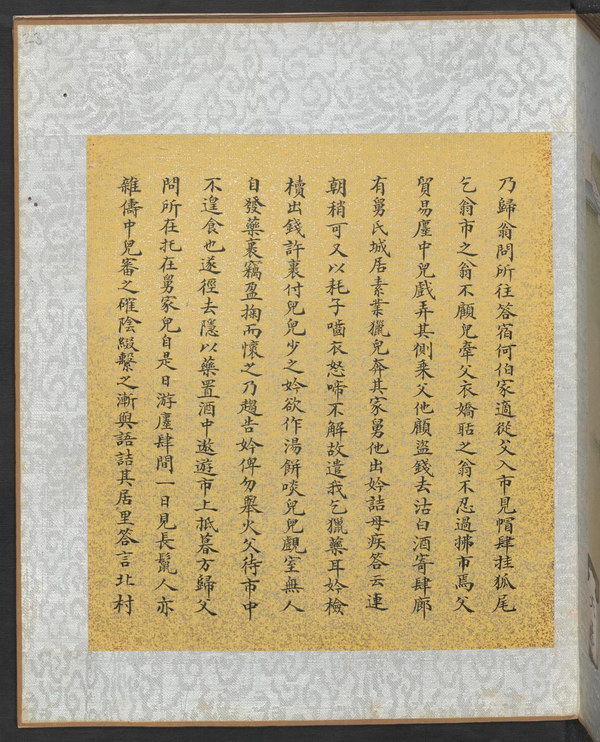 乃歸翁問所往荅宿何伯家適從父入市見帽肆挂狐尾
乞翁市之翁不顧兒牽父衣嬌聒之翁不忍過拂市焉父
貿易廛中兒戲弄其側乘父他顧盜錢去沽白酒寄肆廊
有舅氏城居素業獵兒奔其家舅他出妗詰母疾荅云連
朝稍可又以耗子嚙衣怒啼不解故遣我乞獵藥耳妗檢
櫝出錢許裹付兒兒少之妗欲作湯餅啖兒兒覷室無人
自發藥裹竊盈掬而懷之乃趨告妗俾勿舉火父待市中
不遑食也遂徑去隱以藥置酒中遨遊市上抵暮方歸父
問所在托在舅家兒自是日游廛肆間一日見長鬣人亦
雜儔中兒審之確陰綴繫之漸與語詰其居里荅言北村